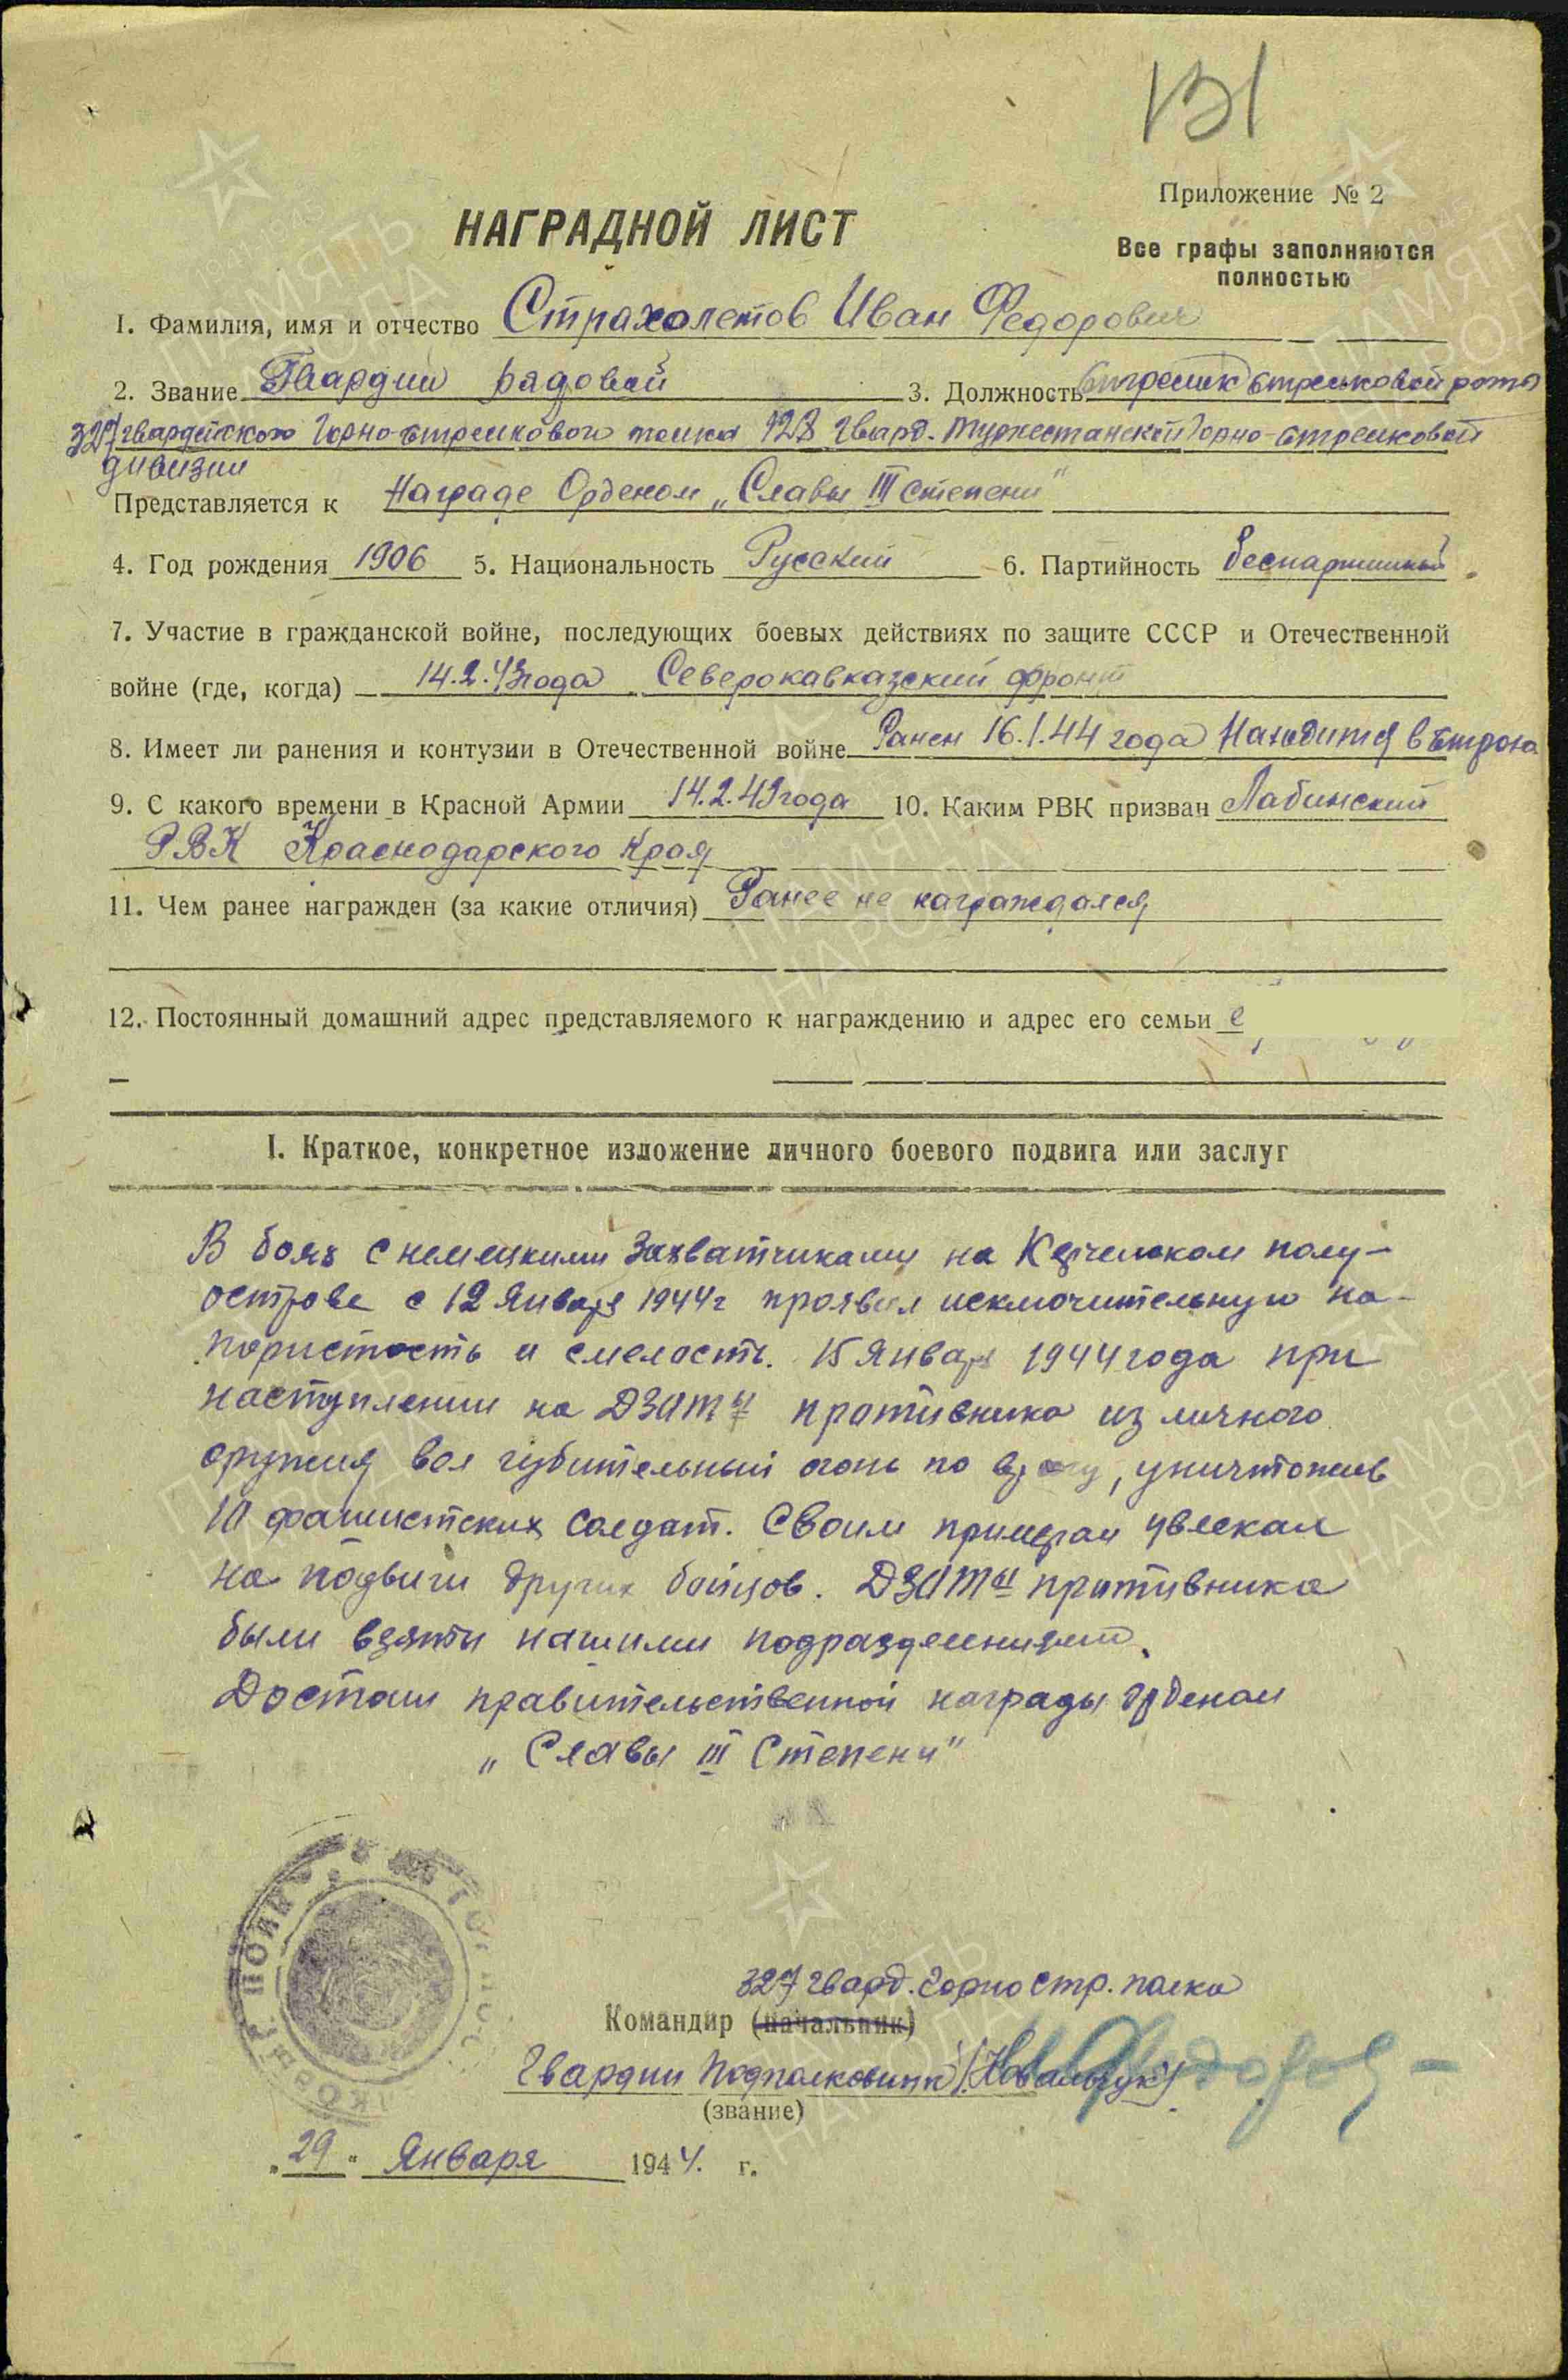 131
Приложение № 2
НАГРАДНОЙ ЛИСТ
Все графы заполняются
полностью
1. Фамилия, имя и отчество Страхолетов Иван Федорович
2. Звание Гвардии рядовой 3. Должность Стрелик стрелковой роты
327 гвардейского Горно-стрелкового полка 128 Гвард. Туркестанской Горно-стрелковой
дивизии
Представляется к Награде Орденом „Славы III степени"
4. Год рождения 1906 5. Национальность Русский 6. Партийность беспартийный
7. Участие в гражданской войне, последующих боевых действиях по защите СССР и Отечественной
войне (где, когда) 14.2.43 года Северокавказский фронт
8. Имеет ли ранения и контузии в Отечественной войне Ранен 16.1.44 года Находится в
9. С какого времени в Красной Армии 14.2.43 года 10. Каким РВК призван Лабинский
РВК Краснодарского Края
11. Чем ранее награжден (за какие отличия) Ранее не награждался
12. Постоянный домашний адрес представляемого к награждению и адрес его семьи
I. Краткое, конкретное изложение личного боевого подвига или заслуг
В боях с немецкими захватчиками на Керченском полу-
острове с 12 Января 1944 г проявил исключительную на-
пористость и смелость. 15 Января 1944 года при
наступлении на ДЗОТы противника из личного
оружия вел губительный огонь по врагу, уничтожив
10 фашистских солдат. Своим примером увлекал
на подвиги других бойцов. ДЗОТы противника
были взяты нашими подразделениями.
Достоин правительственной награды орденом
„Славы III Степени"
327 гвард. Горно стр. полка
Командир (начальник)
Гвардии Подполковник /Ковальчук/
(звание)
„29" Января 1944 г.
ПАМЯТЬ
НАРОДА